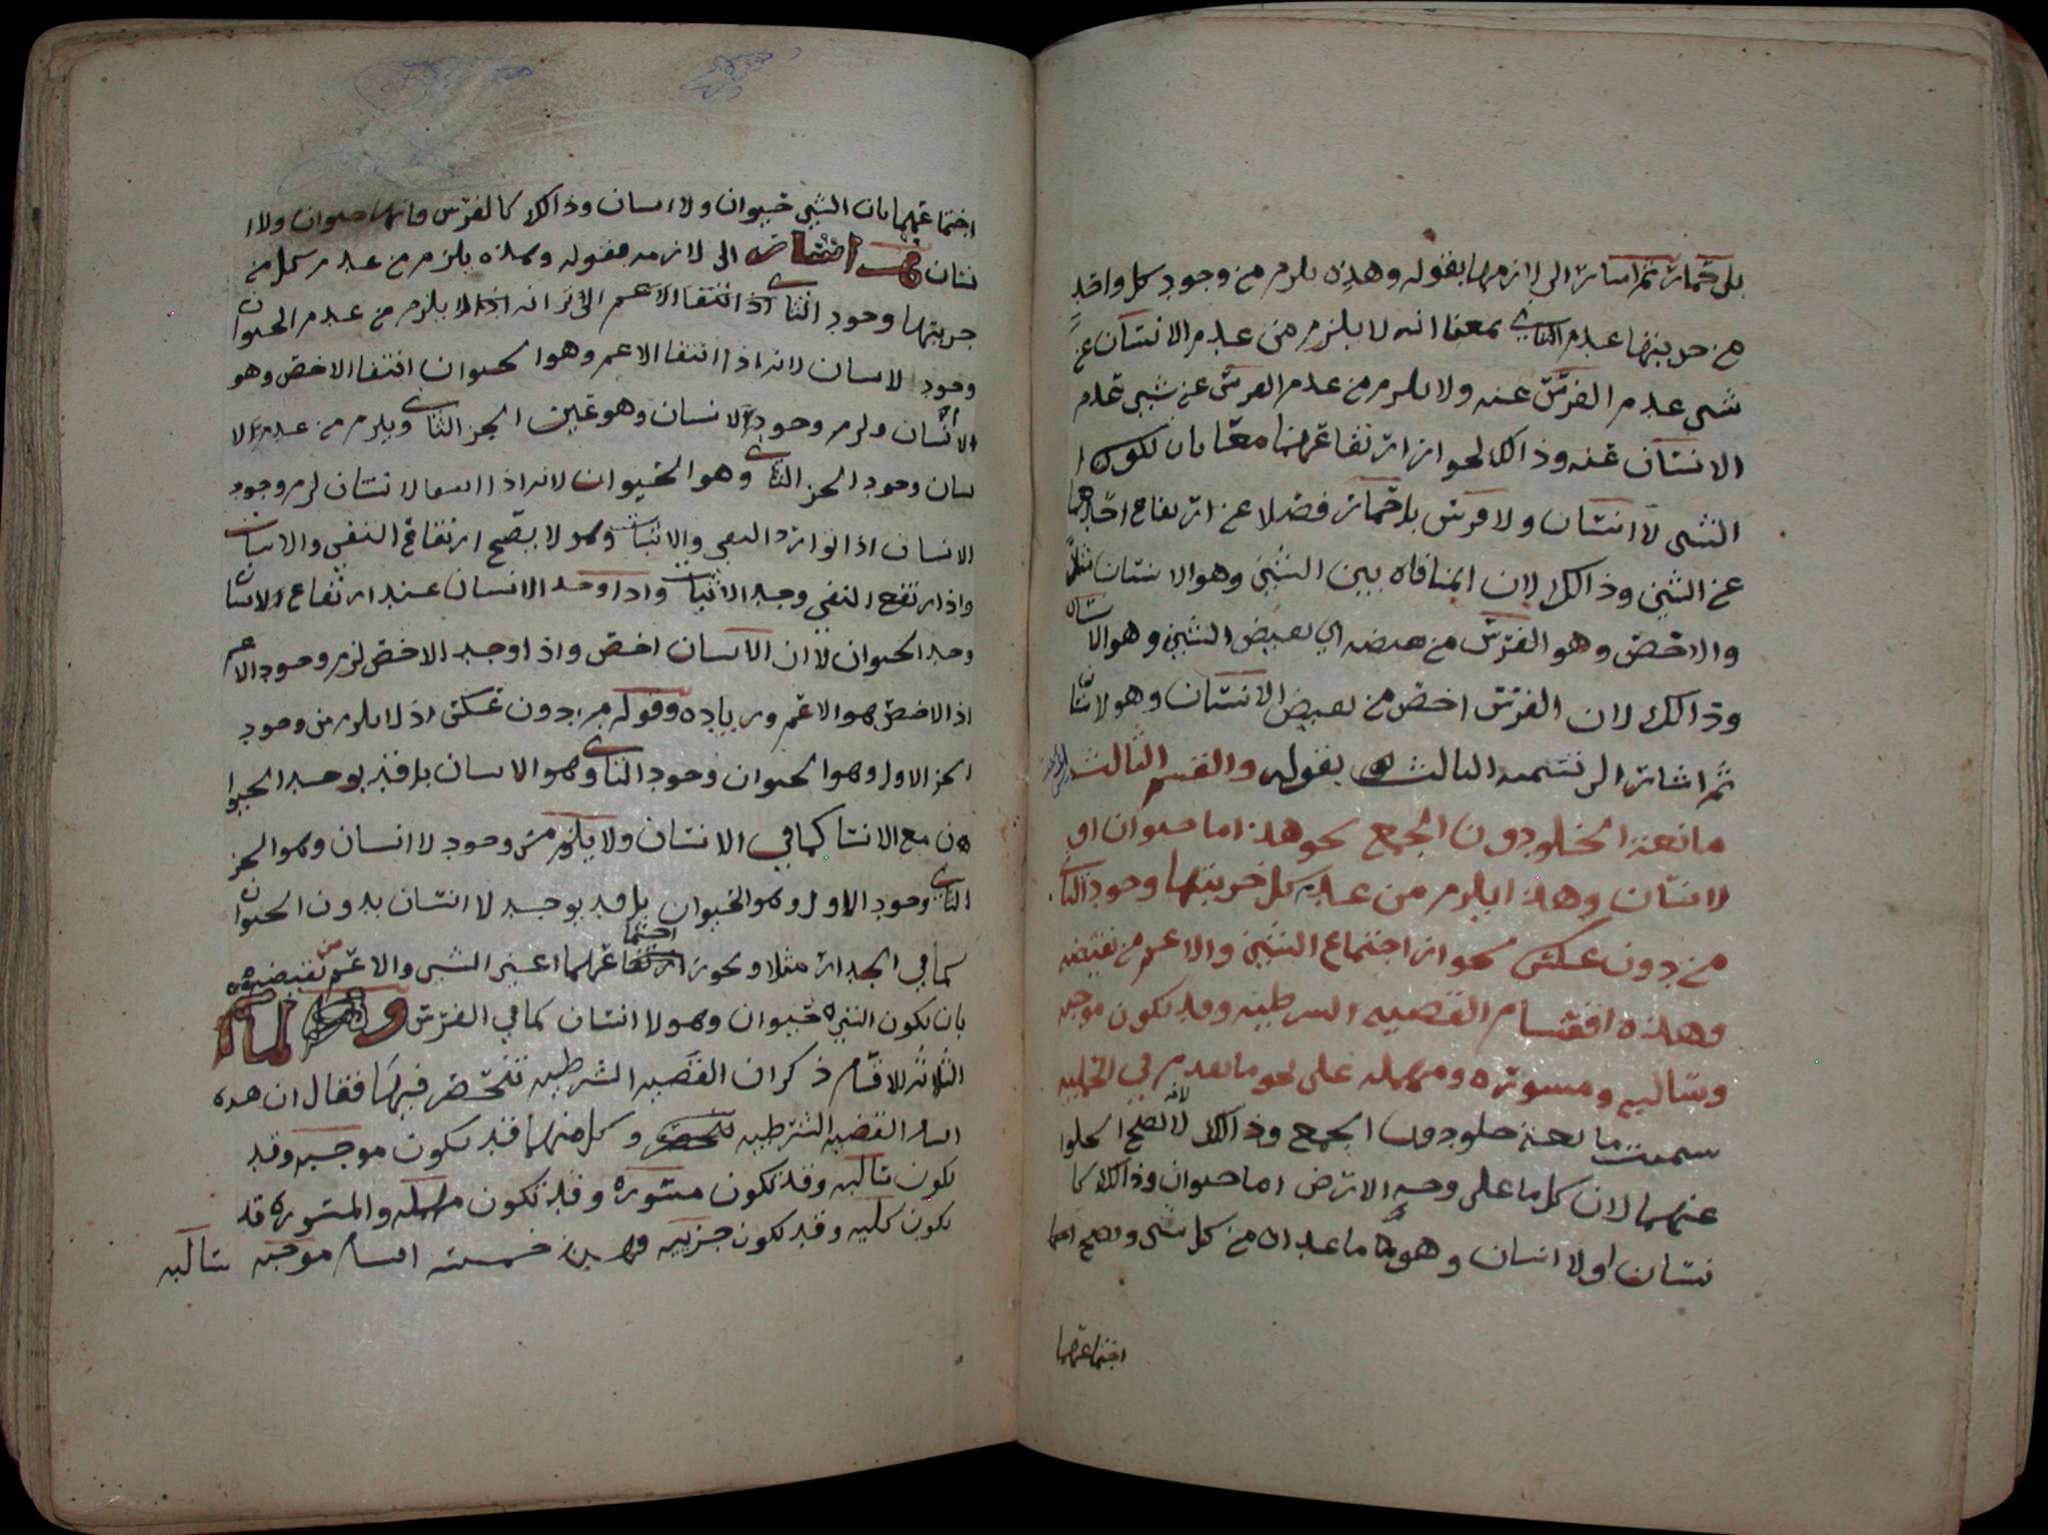 بل حمار ثم اشار الى لازمها بقوله وهذه يلزم من وجود كل واحد
من جزيتها عدم الثاني بمعنا انه لا يلزم من عدم الانسان عن
شي عدم الفرس عنه ولا يلزم من عدم الفرس عن شيي عدم
الانسان عنه وذالك لجواز ارتفاعهما معا بان يكون
الشي لا انسان ولا فرس بل حمار فضلا عن ارتفاع احدهما
عن الشي وذالك لان المنافاه بين الشيي وهو الانسان مثلا
والاخص وهو الفرس من نقيضه اي نقيض الشيي وهو الا نسان
وذالك لان الفرس اخص من نقيض الانسان وهو لا نسا
ثم اشار الى قسمه الثالث بقوله والقسم الثالث
مانعة الخلو دون الجمع نحو هذا اما حيوان او
لا انسان وهذا يلزم من عدم كل جزيتها وجود الثاني
من دون عكس لجواز اجتماع الشيي والاعم من نقيضه
وهذه اقسام القضيه الشرطيه وقد تكون موجبه
وسالبه ومسوره ومهمله على نحو ما تقدم في الحمليه
سميت مانعة خلو دون الجمع وذالك لانه لا يصح الخلوا
عنهما لان كل ما على وجه الارض اما حيوان وذالك كا
نسان او لا انسان وهو ما عداه من كل شي ويصح
اجتماعهما
اجتماعهما بان الشيي حيوان ولا انسان وذالك كالفرس فانها حيوان ولا ا
نسان ثم اشار الى لازمه بقوله وهذه يلزم من عدم كل من
جزيتها وجود الثاني اذ انتفا الاعم الا ترا انه اذا لا يلزم من عدم الحيوان
وجود لا نسان لانه اذا انتفا الاعم وهو الحيوان انتفا الاخص وهو
الانسان ولزم وجود لا انسان وهو عين الجز الثاني ويلزم من عدم لا
نسان وجود الجز الثاني وهو الحيوان لانه اذا انتفا لا نسان لزم وجود
الانسان اذ توارد النفي والاثبات وهو لا يصح ارتفاع النفي والاثبات
واذا ارتفع النفي وجد الاثبات واذا وجد الانسان عند ارتفاع لا نسان
وجد الحيوان لان الانسان اخص واذا وجد الاخص لزم وجود الاعم
اذ الاخص هو الاعم وزياده وقوله من دون عكس اذ لا يلزم من وجود
الجز الاول وهو الحيوان وجود الثاني وهو لا نسان بل قد يوجد الحيوا
ن مع الانسا كما في الانسان ولا يلزم من وجود لا انسان وهو الجز
الثاني وجود الاول وهو الحيوان بل قد يوجد لا انسان بدون الحيوان
كما في الجدار مثلا ويجوز اجتما عهما اعني الشي والاعم من نقيضه
بان يكون الشي حيوان وهو لا انسان كما في الفرس ولما
الثلاثه الاقسام ذكر ان القضيه الشرطيه تنحصر فيها فقال ان هذه
اقسام القضيه الشرطيه وكل منهما قد يكون موجبه وقد
تكون سالبه وقد تكون مسوره وقد تكون مهمله والمسوره قد
تكون كليه وقد تكون جزييه فهذه خمسة اقسام موجبه سالبه